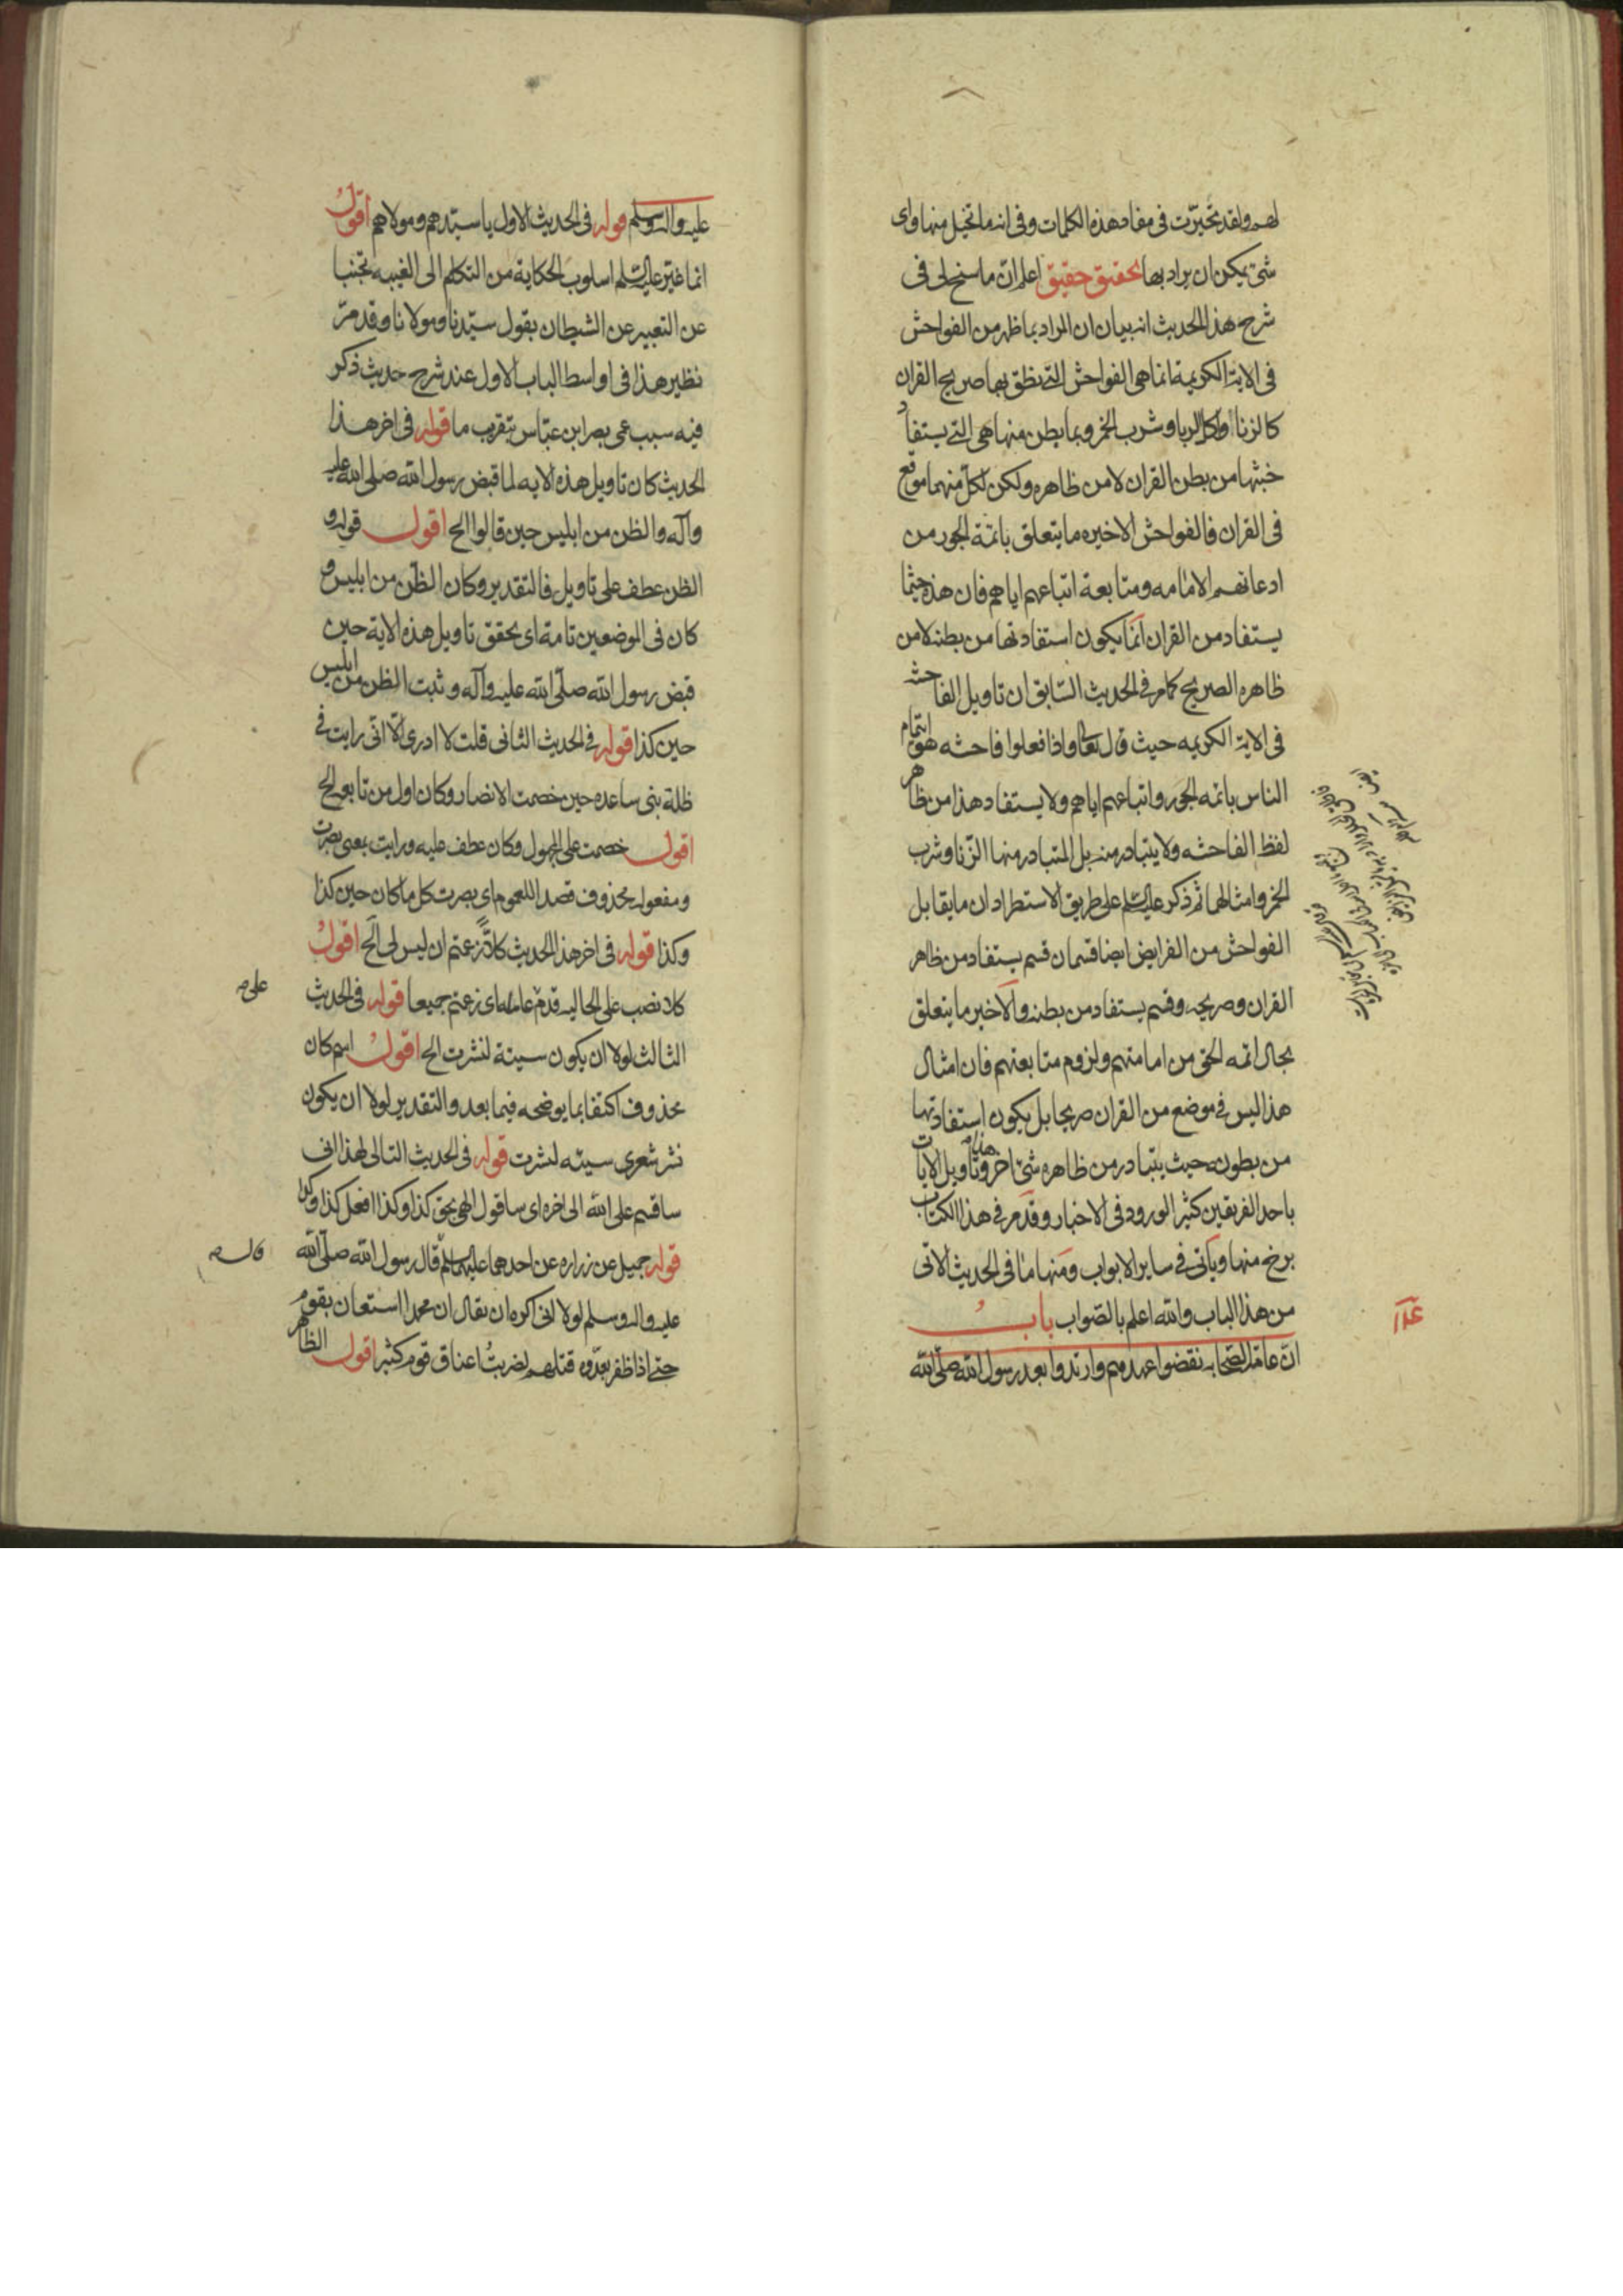 لهم ولقد تحيّرت في مفاد هذه الكلمات وفي انه ما تخيل منها واى
شئ يمكن ان يراد بها تحقيق حقيق اعلم ان ما سنح لى فى
شرح هذا الحديث انه بيان ان المراد بما ظهر من الفواحش
فى الاية الكريمة انما هى الفواحش التى نطق بها صريح القران
كالزنا واكل الربا وشرب الخمر وبما بطن منها هى التى يستفاد
خبثها من بطن القران لا من ظاهره ولكن لكل منهما موقع
فى القران فالفواحش الاخيره ما يتعلق بائمة الجور من
ادعائهم الامامه ومتابعة اتباعهم اياهم فان هذه حيثما
يستفاد من القران انما يكون استفادتها من بطنه لا من
ظاهره الصريح كما مر فى الحديث السّابق ان تاويل الفاحشه
فى الاية الكريمه حيث قال تعالى واذا فعلوا فاحشه هو ايتمام
الناس بائمه الجور واتباعهم اياهم ولا يستفاد هذا من ظاهر
لفظ الفاحشه ولا يتبادر منه بل المتبادر منها الزنا وشرب
الخمر وامثالها ثم ذكر عليه السلم على طريق الاستطراد ان ما يقابل
الفواحش من الفرايض ايضا قسمان قسم يستفاد من ظاهر
القران وصريحه وقسم يستفاد من بطنه والاخير ما يتعلق
بحال ائمه الحق من امامتهم ولزوم متابعتهم فان امثال
هذا ليس فى موضع من القران صريحا بل يكون استفادتها
من بطونه حيث يتبادر من ظاهره شئ اخر وتاويل الايات هذا
باحد الفريقين كثير الورود فى الاخبار وقد مر فى هذا الكتاب
برخ منها وياتى فى ساير الابواب ومنها ما فى الحديث الاتى
من هذا الباب والله اعلم بالصّواب باب
انّ عامّة الصّحابه نقضوا عهدهم وارتدوا بعد رسول الله صلّى الله
عليه واله وسلم قوله فى الحديث الاول يا سيّدهم ومولاهم اقول
انما غيّر عليه السلم اسلوب الحكاية من التكلم الى الغيبه تجنبا
عن التعبير عن الشيطان بقول سيّدنا ومولانا وقد مرّ
نظير هذا فى اواسط الباب الاول عند شرح حديث ذكر
فيه سبب عمى بصر ابن عبّاس بتقريب ما قوله فى اخر هذا
الحديث كان تاويل هذه الايه لما قبض رسول الله صلى الله عليه
وآله والظن من ابليس حين قالوا الخ اقول قوله و
الظن عطف على تاويل فالتقدير وكان الظن من ابليس و
كان فى الموضعين تامة اى تحقق تاويل هذه الاية حين
قبض رسول الله صلّى الله عليه وآله وثبت الظن من ابليس
حين كذا قوله فى الحديث الثانى قلت لا ادرى الّا انّى رايت فى
ظلة بنى ساعده حين خصمت الانصار وكان اول من تابعه الخ
اقول خصمت على المجهول وكان عطف عليه ورايت بمعنى بصرت
ومفعوله محذوف قصد اللعموم اى بصرت كل ما كان حين كذا
وكذا قوله فى اخر هذا الحديث كلا زعمتم ان ليس لى الخ اقول
كلا نصب على الحاليه قدم عامله اى زعمتم جميعا قوله فى الحديث
على
الثالث لولا ان يكون سيئة لنشرت الخ اقول اسم كان
محذوف اكتفا بما يوضحه فيما بعد والتقدير لولا ان يكون
نشر شعرى سيئه لنشرت قوله فى الحديث التالى لهذا انى
ساقسم على الله الى اخره اى ساقول الهى بحق كذا وكذا افعل كذا وكذا
قوله جميل عن زراره عن احدهما عليهما السلم قال رسول الله صلّى الله
قال
عليه واله وسلم لولا انى اكره ان يقال ان محمدا استعان بقوم
حتى اذا ظفر بعدّوه قتلهم لضربت اعناق قوم كثير اقول الظاهر